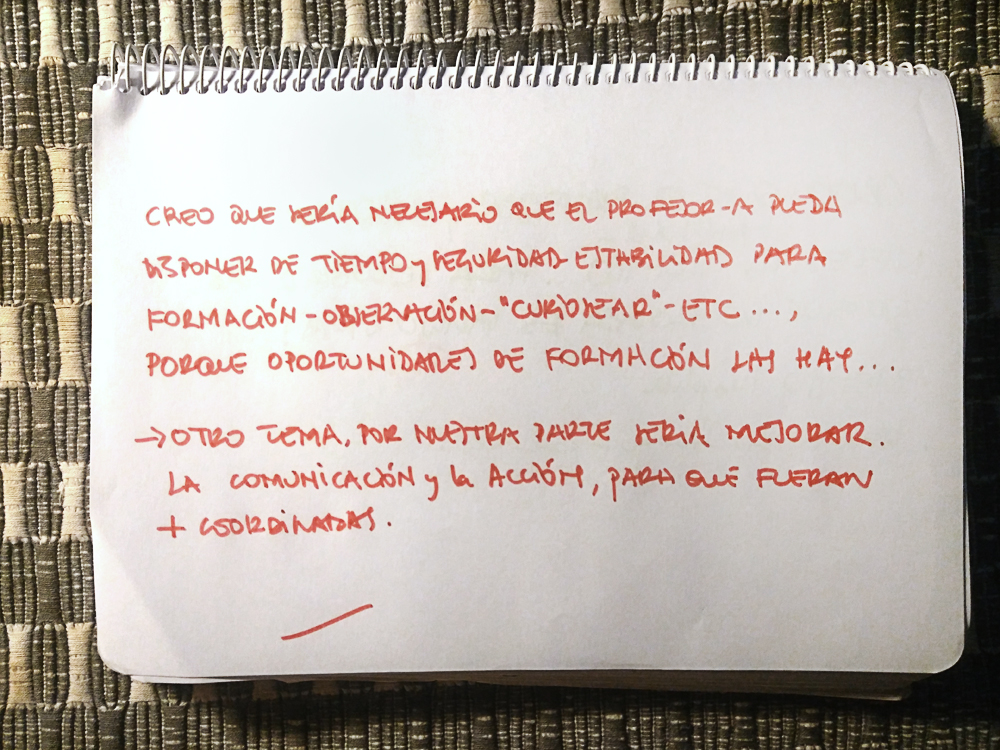 CREO QUE SERÍA NECESARIO QUE EL PROFESOR-A PUEDA
DISPONER DE TIEMPO y SEGURIDAD-ESTABILIDAD PARA
FORMACIÓN-OBSERVACIÓN-"CURIOSEAR"-ETC...,
PORQUE OPORTUNIDADES DE FORMACIÓN LAS HAY...
→ OTRO TEMA, POR NUESTRA PARTE SERIA MEJORAR.
LA COMUNICACIÓN y la ACCIÓN, PARA QUE FUERAN
+ COORDINADAS.